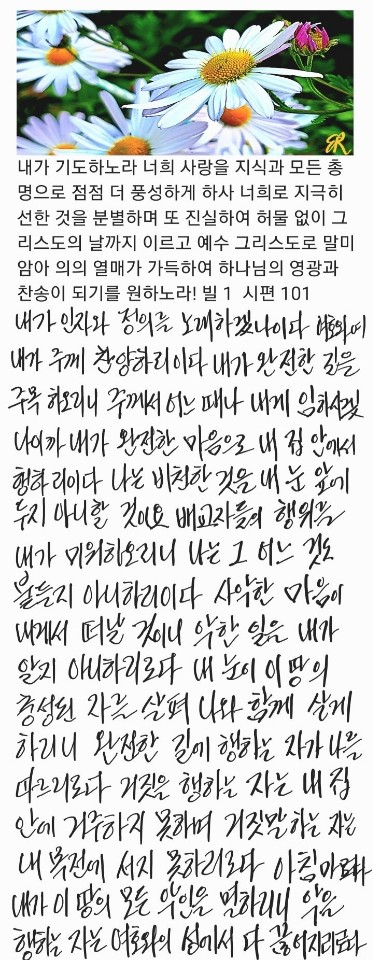 내가 기도하노라 너희 사랑을 지식과 모든 총
명으로 점점 더 풍성하게 하사 너희로 지극히
선한 것을 분별하며 또 진실하여 허물 없이 그
리스도의 날까지 이르고 예수 그리스도로 말미
암아 의의 열매가 가득하여 하나님의 영광과
찬송이 되기를 원하노라! 빌 1 시편 101
내가 인자와 정의를 노래하겠나이다 여호와여
내가 주께 찬양하리이다 내가 완전한 길을
주목하오리니 주께서 어느 때나 내게 임하시겠
나이까 내가 완전한 마음으로 내 집 안에서
행하리이다 나는 비천한 것을 내 눈 앞에
두지 아니할 것이요 배교자들의 행위를
내가 미워하오리니 나는 그 어느 것도
붙들지 아니하리이다 사악한 마음이
내게서 떠날 것이니 악한 일을 내가
알지 아니하리로다 내 눈이 이 땅의
충성된 자를 살펴 나와 함께 살게
하리니 완전한 길에 행하는 자가 나를
따르리로다 거짓을 행하는 자는 내 집
안에 거주하지 못하며 거짓말하는 자는
내 목전에 서지 못하리로다 아침마다
내가 이 땅의 모든 악인을 멸하리니 악을
행하는 자는 여호와의 성에서 다 끊어지리로다